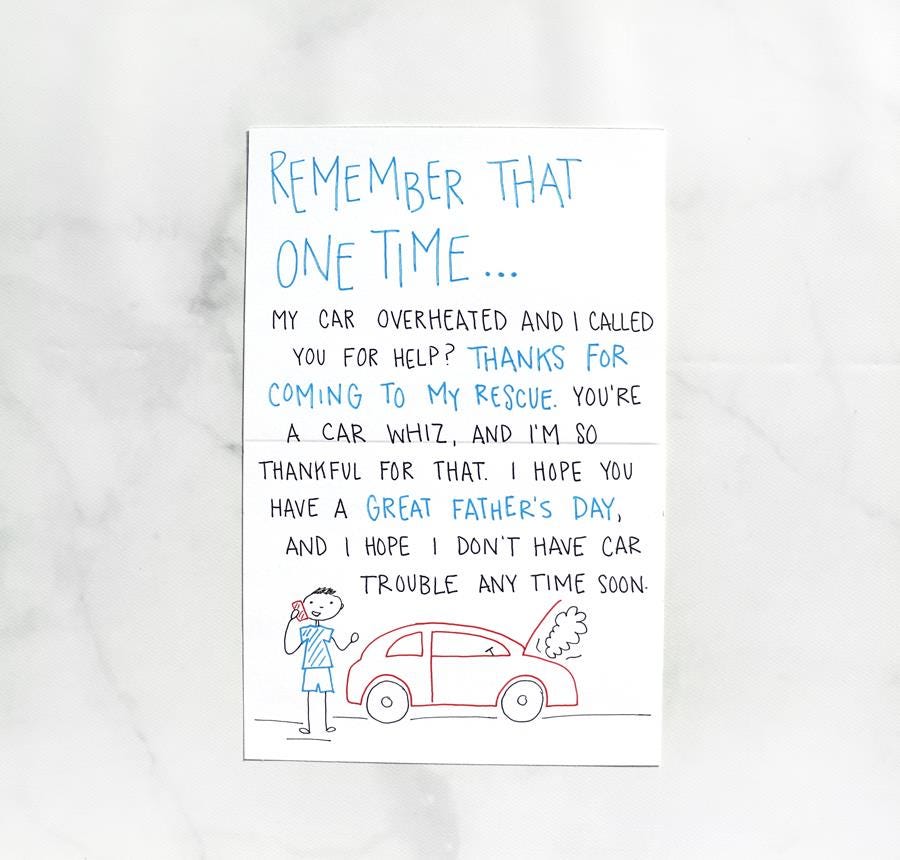 REMEMBER THAT
ONE TIME...
MY CAR OVERHEATED AND I CALLED
YOU FOR HELP? THANKS FOR
COMING TO MY RESCUE. YOU'RE
A CAR WHIZ, AND I'M SO
THANKFUL FOR THAT. I HOPE YOU
HAVE A GREAT FATHER'S DAY,
AND I HOPE I DON'T HAVE CAR
TROUBLE ANY TIME SOON.